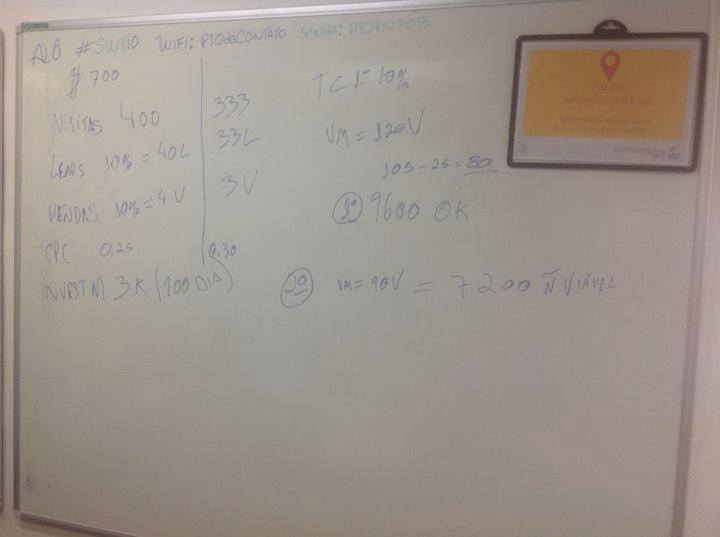 WIFI: PTOdeCONTATO SENHA: PTORIO2013
$ 700
VISITAS 400 333
LEADS 10% = 40L 33L
VENDAS 10% = 4 V 3V
CPC 0,25 0,30
INVESTM. 3K (100 DIA)
10%
VM = 120V
105 - 25 = 80
1º 9600 OK
2º VM = 90V = 7200 Ñ VIÁVEL